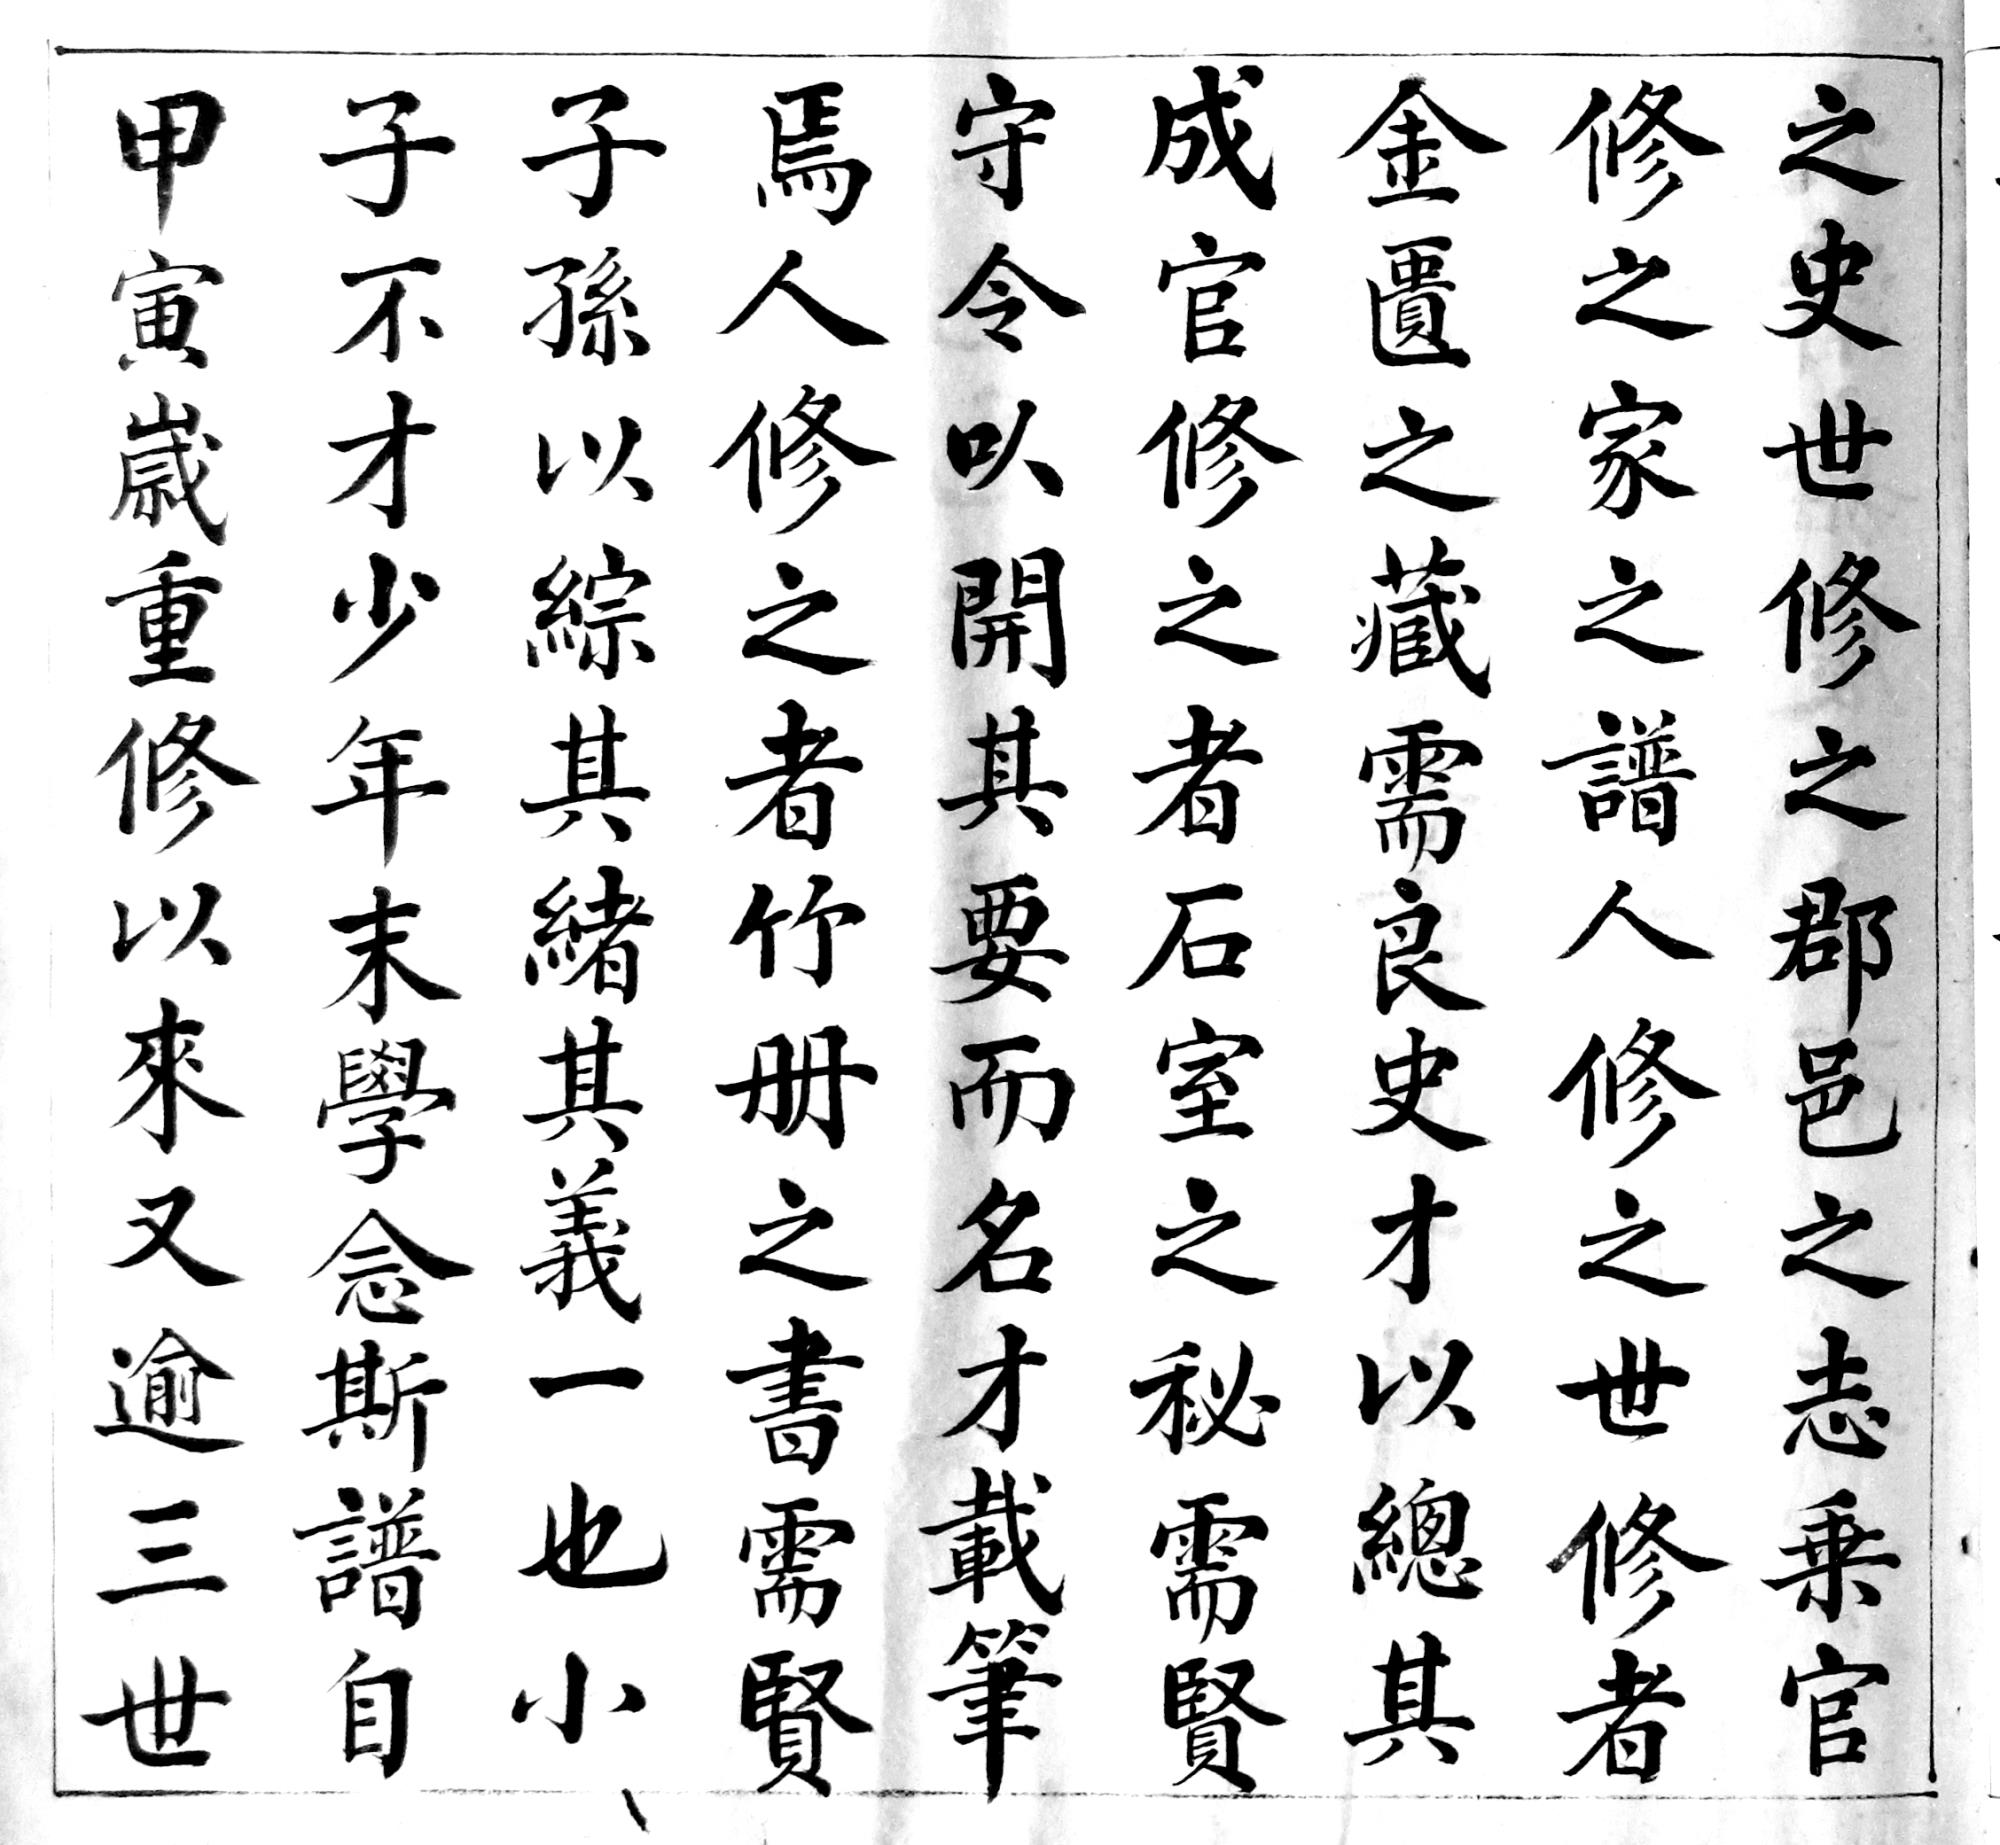 之史世修之郡邑之志乗官
修之家之譜人修之世修者
金匱之藏需良史才以總其
成官修之者石室之秘需賢
守令以開其要而名才載筆
焉人修之者竹册之書需賢
子孫以綜其緒其義一也小
子不才少年末學念斯譜自
甲寅歲重修以來又逾三世